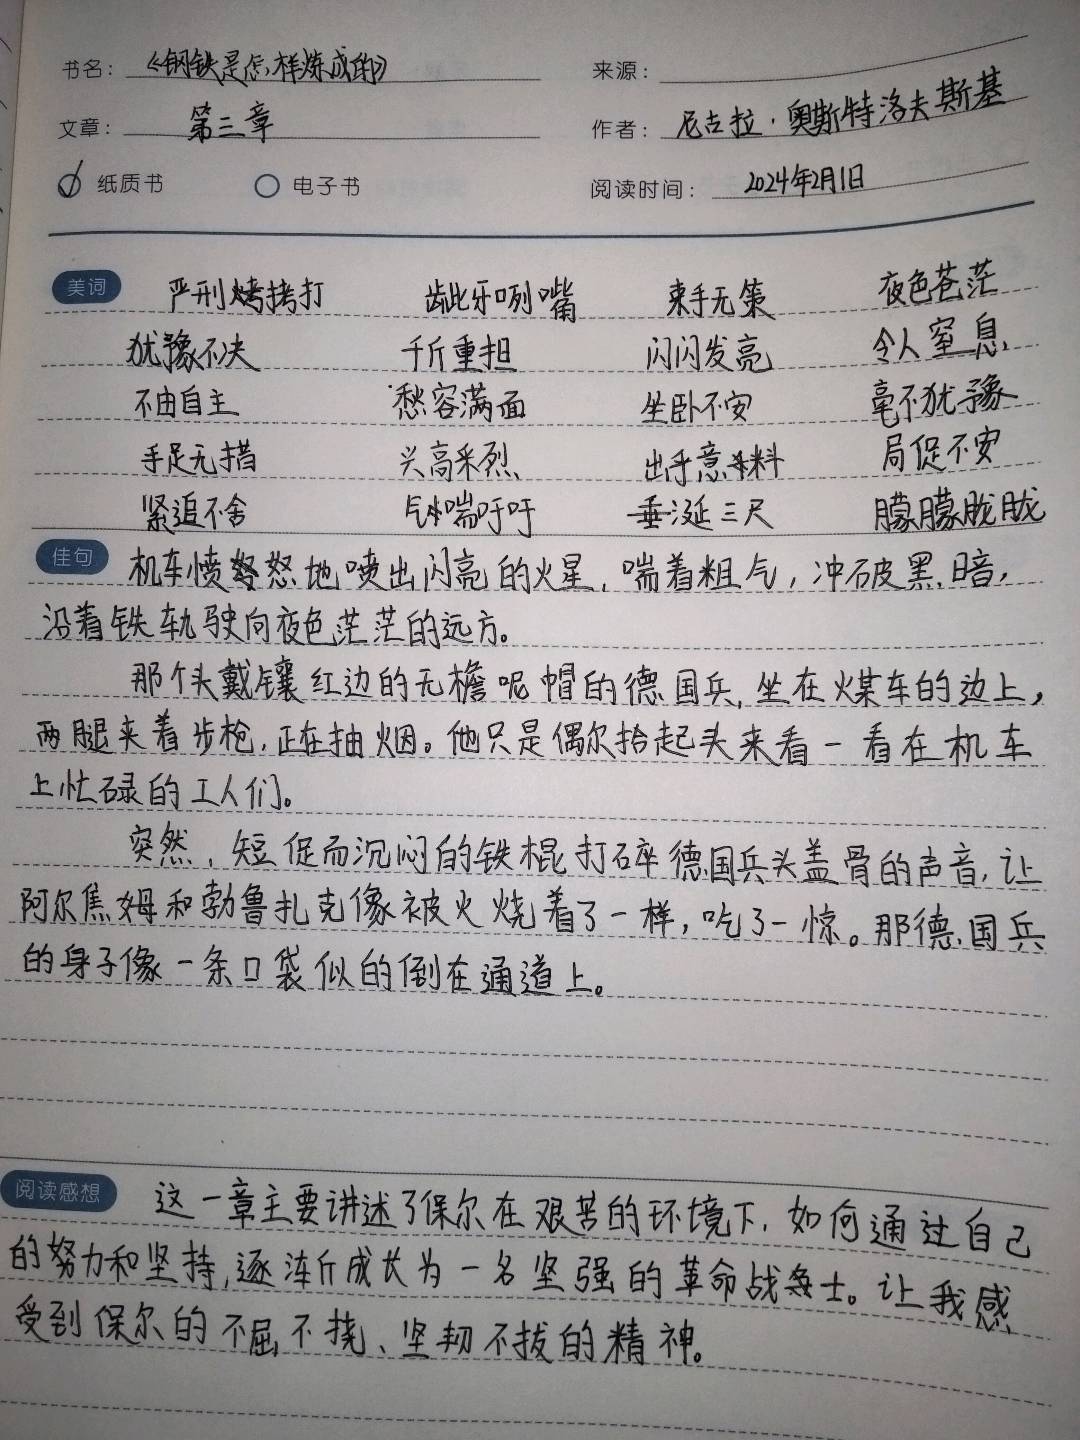 书名：《钢铁是怎样炼成的》 来源：
文章：第三章 作者：尼古拉·奥斯特洛夫斯基
纸质书 电子书 阅读时间：2024年2月1日
美词 严刑拷打 龇牙咧嘴 束手无策 夜色苍茫
犹豫不决 千斤重担 闪闪发亮 令人窒息
不由自主 愁容满面 坐卧不安 毫不犹豫
手足无措 兴高采烈 出乎意料 局促不安
紧追不舍 气喘吁吁 垂涎三尺 朦朦胧胧
佳句 机车愤怒地喷出闪亮的火星，喘着粗气，冲破黑暗，
沿着铁轨驶向夜色茫茫的远方。
那个头戴镶红边的无檐呢帽的德国兵，坐在煤车的边上，
两腿夹着步枪，正在抽烟。他只是偶尔抬起头来看一看在机车
上忙碌的工人们。
突然，短促而沉闷的铁棍打碎德国兵头盖骨的声音，让
阿尔焦姆和勃鲁扎克像被火烧着了一样，吃了一惊。那德国兵
的身子像一条口袋似的倒在通道上。
阅读感想 这一章主要讲述了保尔在艰苦的环境下，如何通过自己
的努力和坚持，逐渐成长为一名坚强的革命战士。让我感
受到保尔的不屈不挠、坚韧不拔的精神。